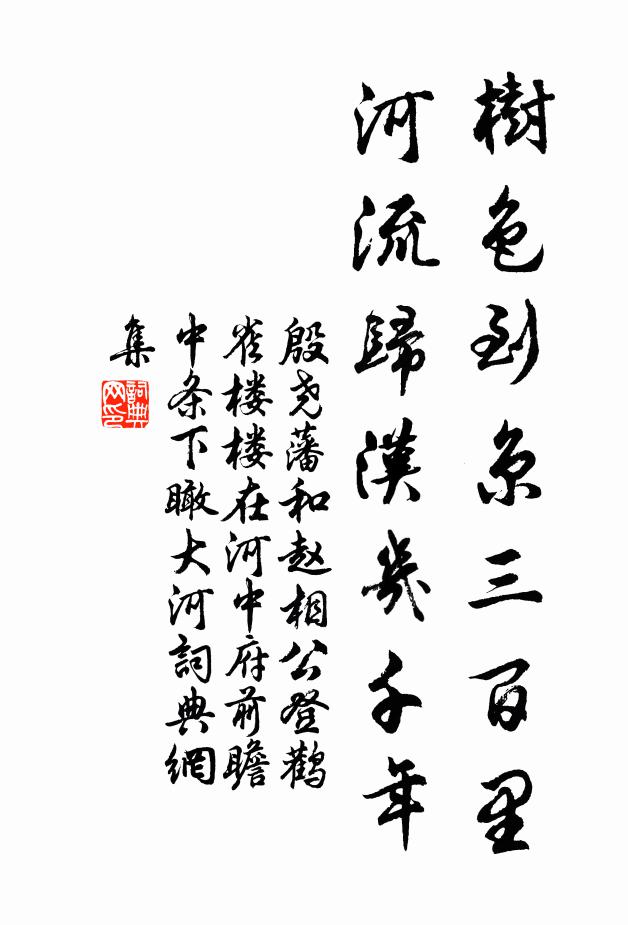 樹色到京三百里
河流歸漢幾千年
殷尧藩和赵相公登鹳
雀楼楼在河中府前瞻
中条下瞰大河詞典網
集
詞典
网印